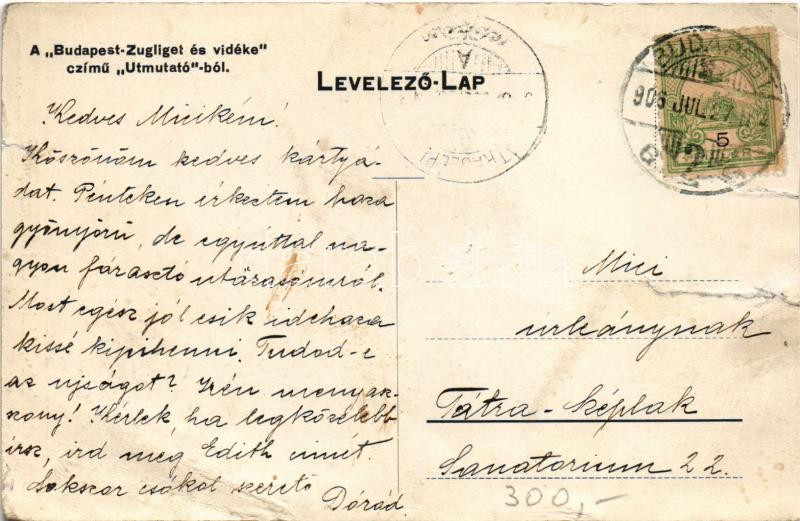 A „Budapest-Zugliget és vidéke”
czímű „Utmutató”-ból.
LEVELEZŐ-LAP
906 JUL 27
5
Kedves Micikém!
Köszönöm kedves kártyá-
dat. Pénteken érkeztem haza
gyönyörű, de egyúttal na-
gyon fárasztó utazásomról.
Most egész jól esik idehaza
kissé kipihenni. Tudod-e
az ujságot? Irén menyas-
szony! Kérlek, ha legközelebb
irsz, ird meg Edith cimét.
Sokszor csókol szerető
Dórád.
Mici
úrleánynak
Tátra-Széplak
Sanatorium 22.
300,-